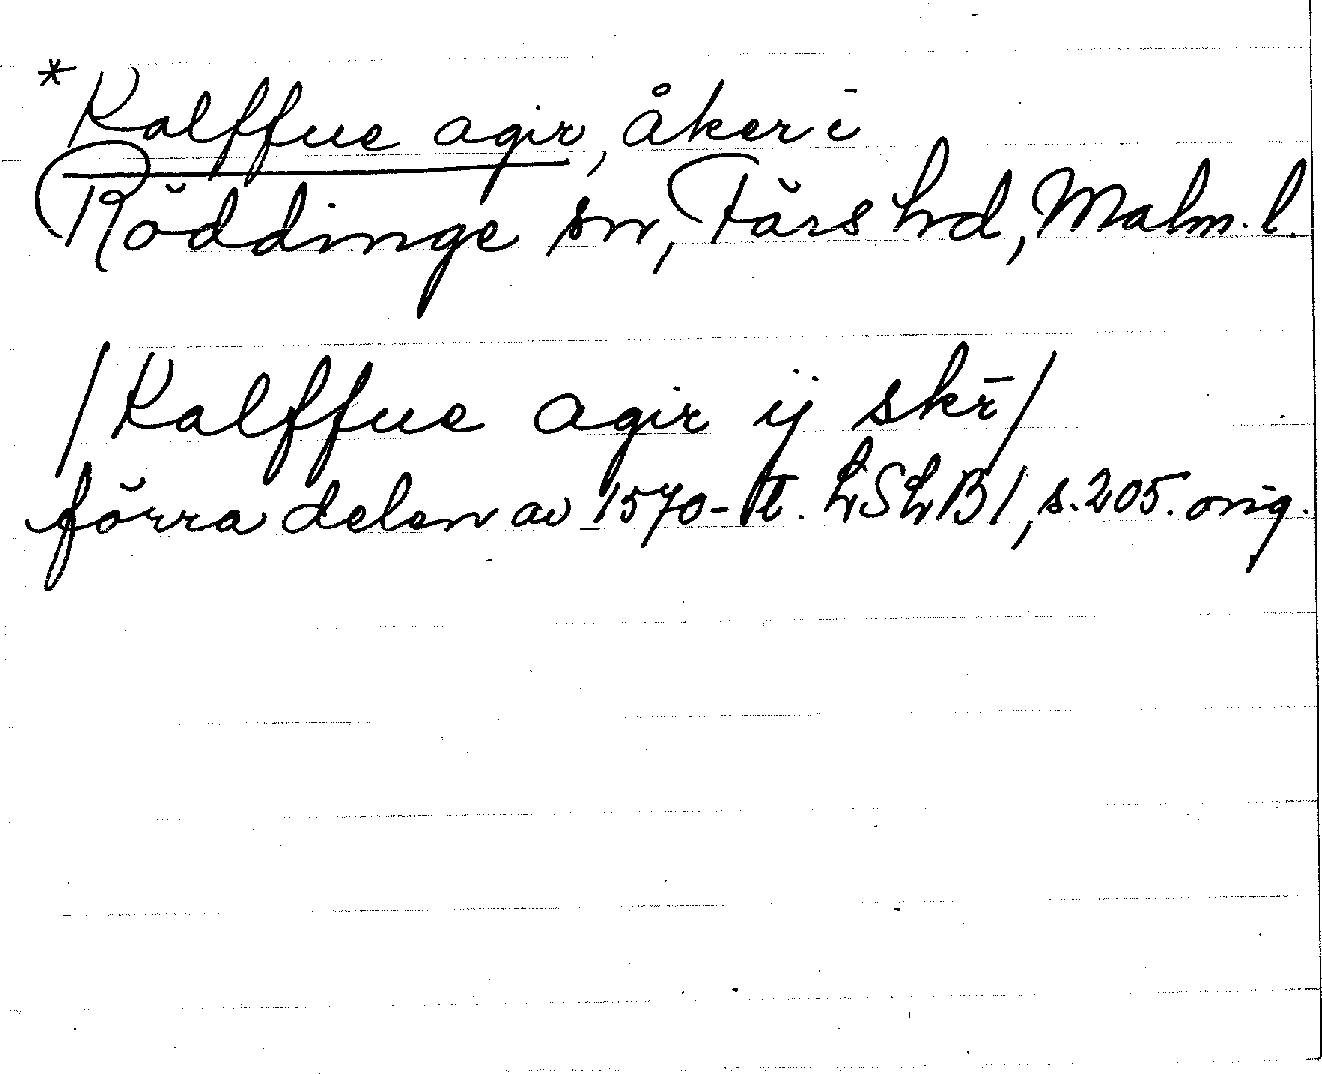 *Kalffue agir, åker i
Röddinge sn, Färs hd, Malm. l.
/Kalffue agir ij skr̄/
förra delen av 1570-t. LSLB1, s. 205. orig.